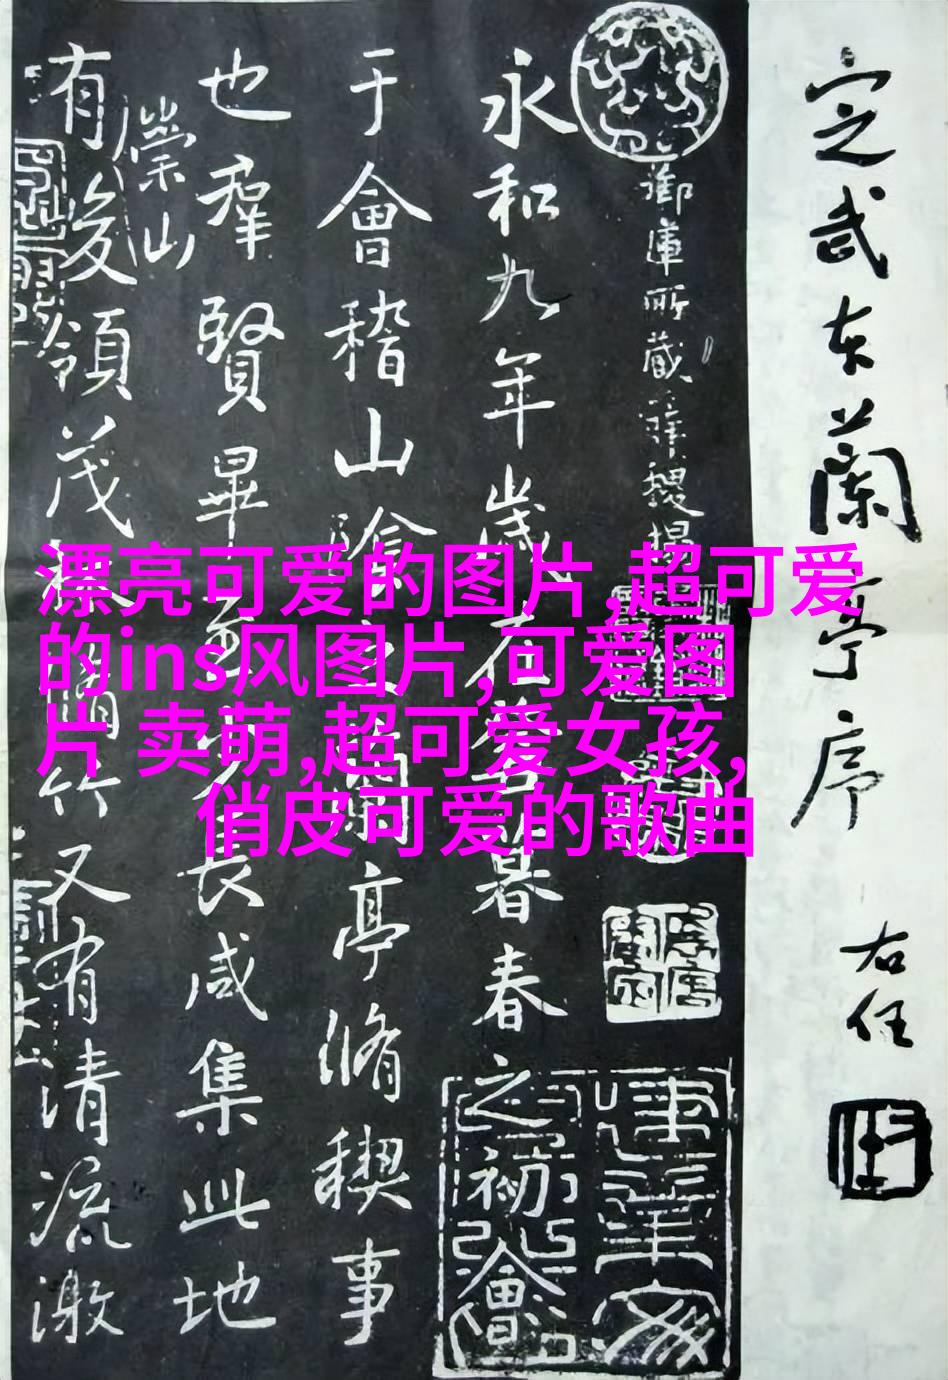 定武本蘭亭序
右任
御庫所藏
永和九年歲在癸丑暮春之初會
于會稽山陰之蘭亭脩稧事
也羣賢畢至少長咸集此地
有崇山
峻領茂林脩竹又有清流激
漂亮可爱的图片,超可爱
的ins风图片,可爱图
片 卖萌,超可爱女孩,
俏皮可爱的歌曲